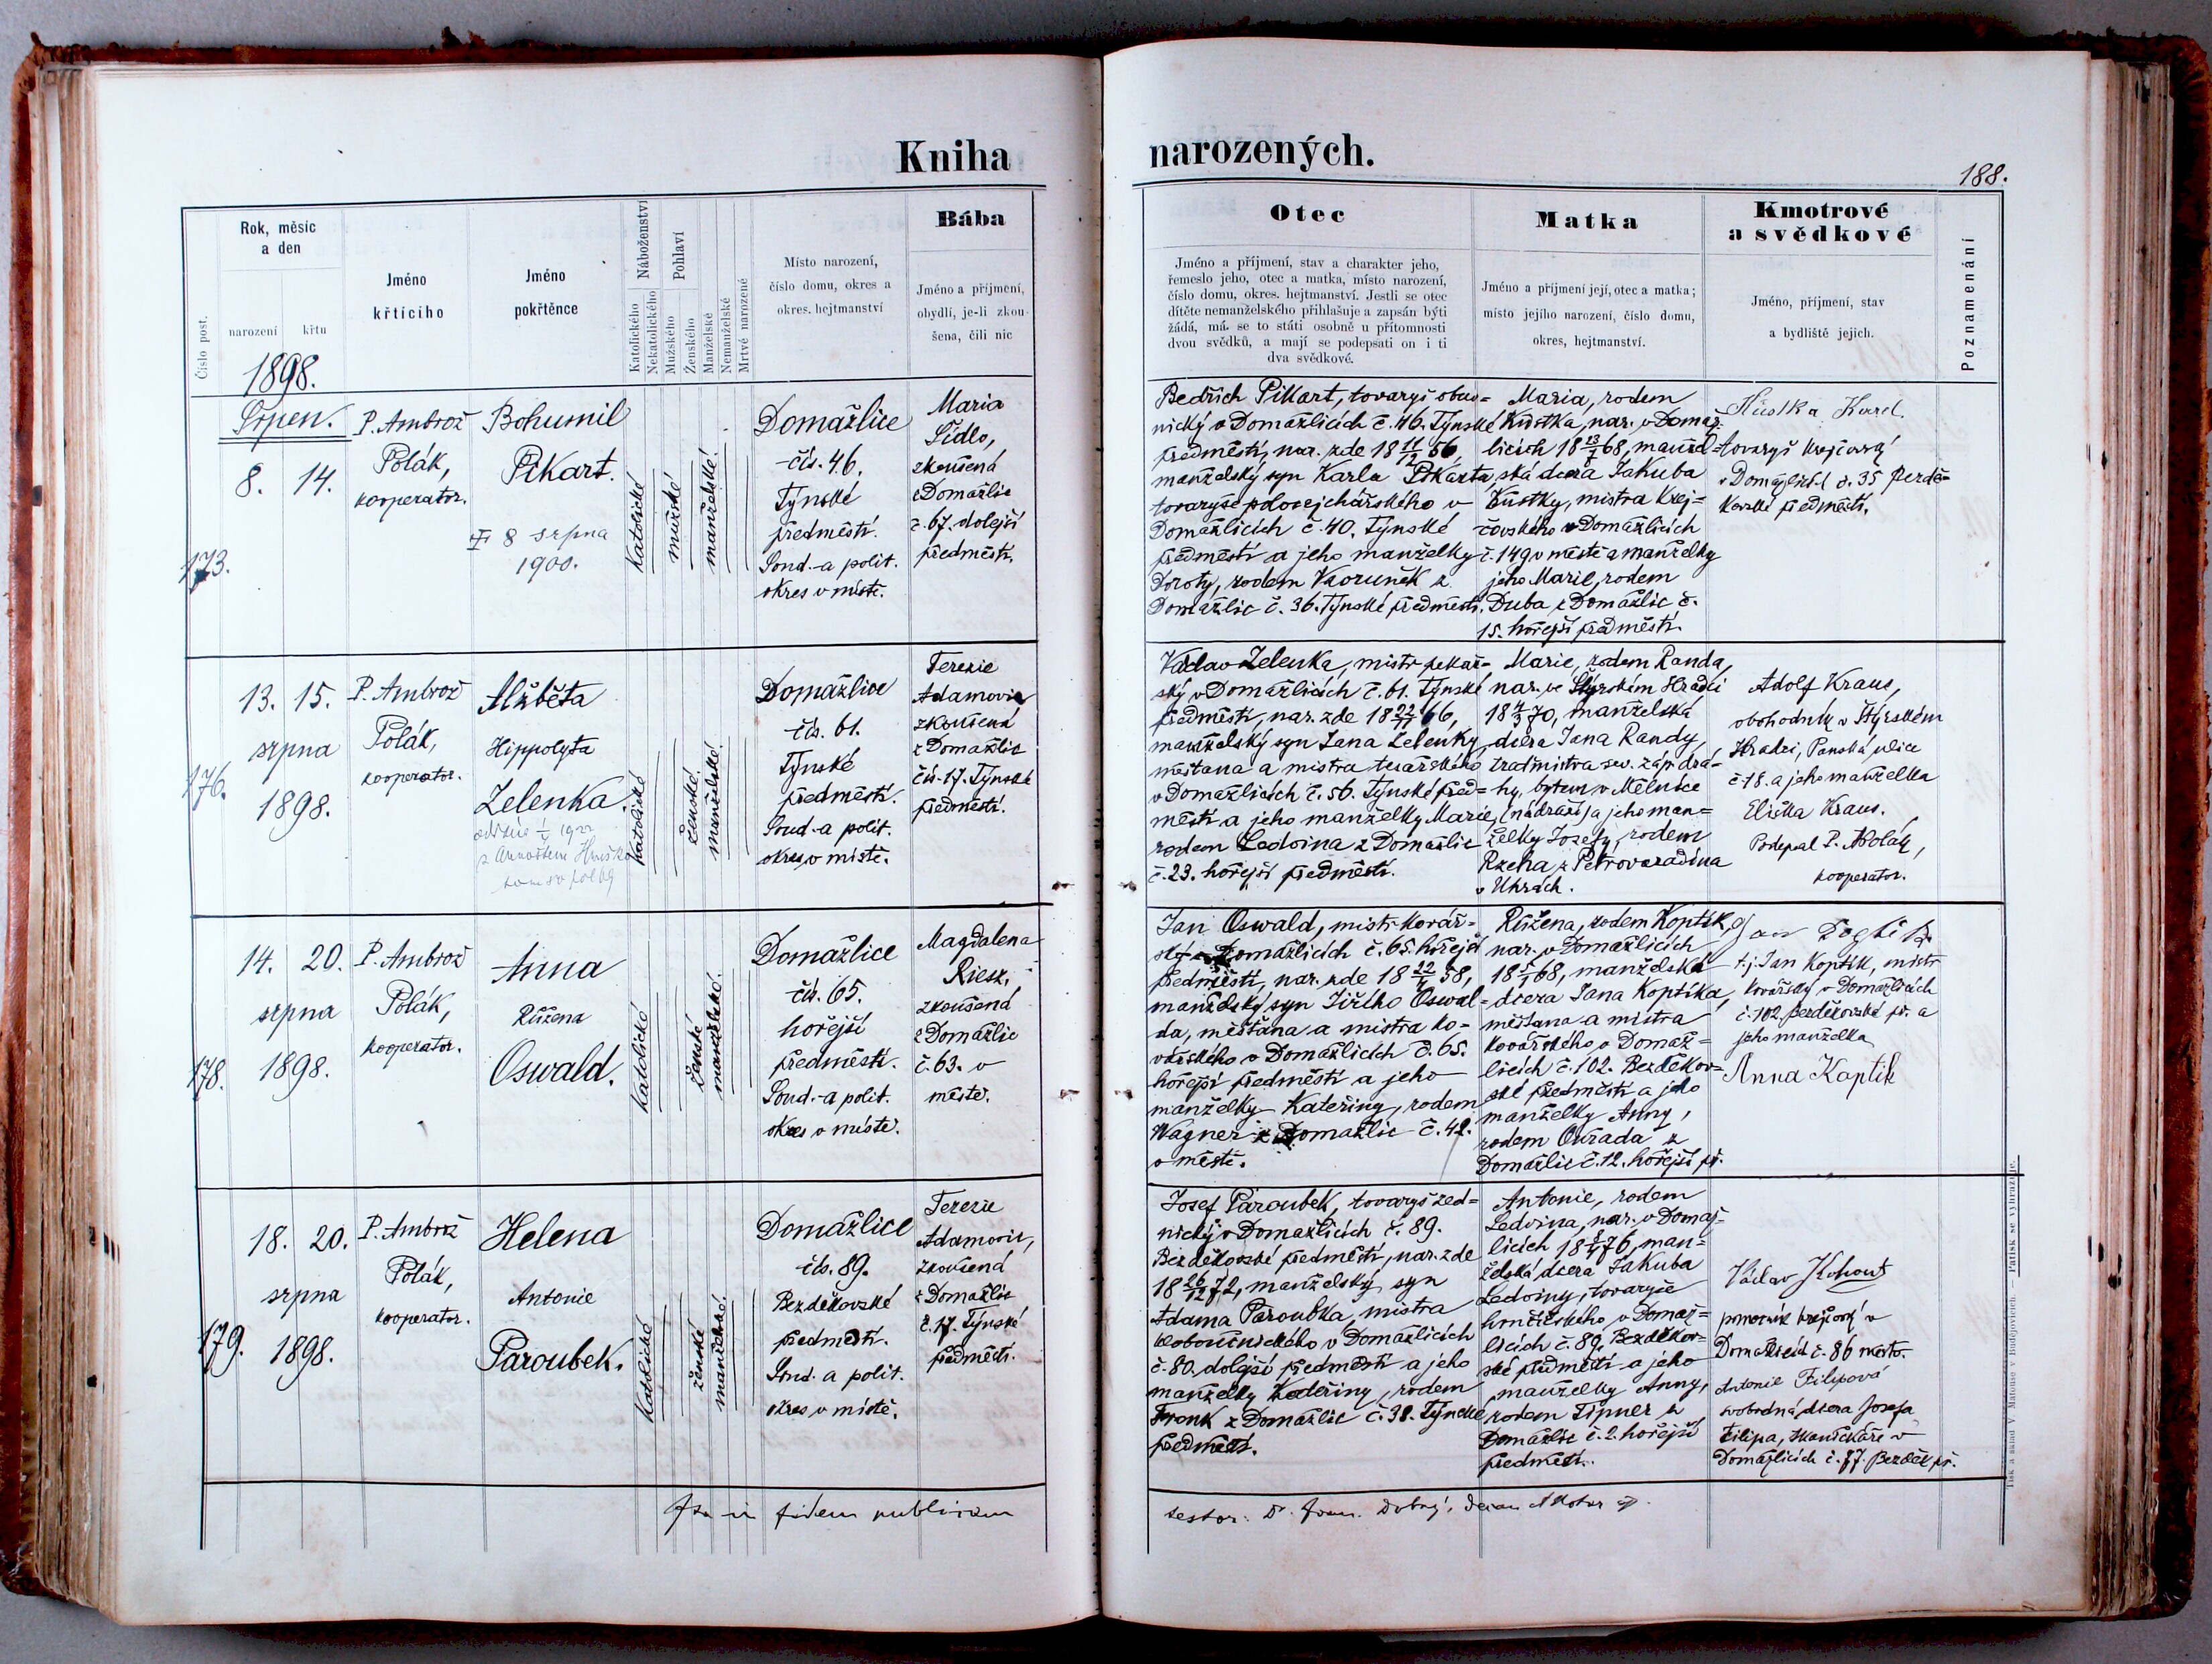 Kniha
narozených.
188.
Rok, měsíc
a den
Číslo post.
narození
křtu
Jméno
křtícího
Jméno
pokřtěnce
Náboženství
Katolického
Nekatolického
Pohlaví
Mužského
Ženského
Manželské
Nemanželské
Mrtvé narozené
Místo narození,
číslo domu, okres a
okres. hejtmanství
Bába
Jméno a příjmení,
obydlí, je-li zkou-
šena, čili nic
Otec
Jméno a příjmení, stav a charakter jeho,
řemeslo jeho, otec a matka, místo narození,
číslo domu, okres. hejtmanství. Jestli se otec
dítěte nemanželského přihlašuje a zapsán býti
žádá, má se to státi osobně u přítomnosti
dvou svědků, a mají se podepsati on i ti
dva svědkové.
Matka
Jméno a příjmení její, otec a matka;
místo jejího narození, číslo domu,
okres, hejtmanství.
Kmotrové
a svědkové
Jméno, příjmení, stav
a bydliště jejich.
Poznamenání
1898.
Srpen.
173.
8. 14.
P. Ambrož
Polák,
kooperator.
Bohumil
Pikart.
8 srpna
1900.
katolické
mužské
manželské.
Domažlice
čís. 46.
Týnské
předměstí.
Soud.-a polit.
okres v místě.
Maria
Sídlo,
zkoušená
z Domažlic
č. 67. dolejší
předměstí.
Bedřich Pikart, tovaryš obuv=
nický v Domažlicích č. 46. Týnské
předměstí, nar. zde 18 11/12 56,
manželský syn Karla Pikarta
tovaryše v
Domažlicích č. 40. Týnské
předměstí a jeho manželky
Doroty, rodem z
Domažlic č. 36. Týnské předměstí.
Maria, rodem
Kustka, nar. v Domaž=
licích 18 68, manžel=
ská dcera Jakuba
Kustky, mistra krej=
čovského v Domažlicích
č. 149 v městě a manželky
jeho Marie, rodem
Duba z Domažlic č.
15. hořejší předměstí.
Kustka Karel
tovaryš krejčovský
v Domažlicích č. 35 Bezdě=
kovské předměstí.
176.
13. 15.
srpna
1898.
P. Ambrož
Polák,
kooperator.
Alžběta
Hippolyta
Zelenka.
1922
katolické
ženské.
manželské.
Domažlice
čís. 61.
Týnské
předměstí.
Soud.-a polit.
okres v místě.
Terezie
Adamovic,
zkoušená
z Domažlic
čís. 17. Týnské
předměstí.
Václav Zelenka, mistr pekař=
ský v Domažlicích č. 61. Týnské
předměstí, nar. zde 18 22/11 66,
manželský syn Jana Zelenky,
měšťana a mistra
v Domažlicích č. 56. Týnské před=
městí a jeho manželky Marie,
rodem Ledvina z Domažlic
č. 23. hořejší předměstí.
Marie, rodem Randa,
nar. ve Štýrském Hradci
18 4/3 70, manželská
dcera Jana Randy,
traťmistra sev. záp. drá=
hy, bytem v Mělníce
(nádraží) a jeho man=
želky Josefy, rodem
Rzeha z Petrovaradína
v Uhrách.
Adolf Kraus,
obchodník v Štýrském
Hradci, Panská ulice
č. 18. a jeho manželka
Eliška Kraus.
Podepsal P. Polák,
kooperator.
178.
14. 20.
srpna
1898.
P. Ambrož
Polák,
kooperator.
Anna
Růžena
Oswald.
katolické
ženské
manželské.
Domažlice
čís. 65.
hořejší
předměstí.
Soud.-a polit.
okres v místě.
Magdalena
Riesz,
zkoušená
z Domažlic
č. 63. v
městě.
Jan Oswald, mistr kovář=
ský v Domažlicích č. 65. hořejší
předměstí, nar. zde 18 58,
manželský syn Jiřího Oswal=
da, měšťana a mistra ko=
vářského v Domažlicích č. 65.
hořejší předměstí a jeho
manželky Kateřiny, rodem
Wagner z Domažlic č. 42.
v městě.
Růžena, rodem Koptík,
nar. v Domažlicích
18 68, manželská
dcera Jana Koptíka,
měšťana a mistra
kovářského v Domaž=
licích č. 102. Bezděkov=
ské předměstí a jeho
manželky Anny,
rodem Ouřada z
Domažlic č. 12. hořejší př.
Jan
t. j. Jan Koptík, mistr
kovářský v Domažlicích
č. 102. Bezděkovské př. a
jeho manželka
Anna Koptik
179.
18. 20.
srpna
1898.
P. Ambrož
Polák,
kooperator.
Helena
Antonie
Paroubek.
katolické
ženské
manželské.
Domažlice
čís. 89.
Bezděkovské
předměstí.
Soud. a polit.
okres v místě.
Terezie
Adamovic,
zkoušená
z Domažlic
č. 17. Týnské
předměstí.
Josef Paroubek, tovaryš zed=
nický v Domažlicích č. 89.
Bezděkovské předměstí, nar. zde
18 26/12 72, manželský syn
Adama Paroubka, mistra
kloboučnického v Domažlicích
č. 80. dolejší předměstí a jeho
manželky Kateřiny, rodem
Frank z Domažlic č. 38. Týnské
předměstí.
Antonie, rodem
Ledvina, nar. v Domaž=
licích 18 76, man=
želská dcera Jakuba
Ledviny, tovaryše
hrnčířského v Domaž=
licích č. 89. Bezděkov=
ské předměstí a jeho
manželky Anny,
rodem Tipner z
Domažlic č. 2. hořejší
předměstí.
Václav Kohout
pomocník krejčovský v
Domažlicích č. 86 město.
Antonie Filipová
svobodná dcera Josefa
Filipa, v
Domažlicích č. 77. Bezděk. př.
Ita in fidem publicam
testor: Dr. Fran. Dobrý,
Tisk a sklad V. Mátouše v Budějovicích. — Patisk se vyhrazuje.